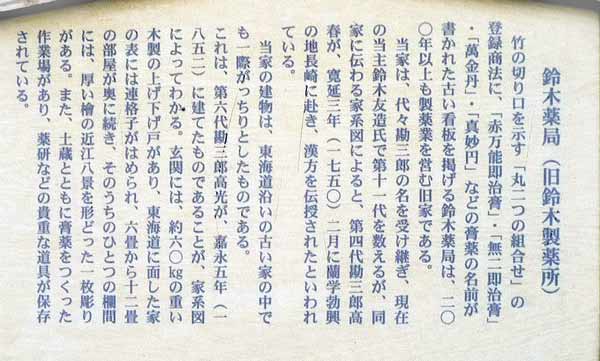 鈴木薬局（旧鈴木製薬所）
竹の切り口を示す「丸二つの組合せ」の
登録商法に、「赤万能即治膏」・「無二即治膏」
・「萬金丹」・「真妙円」などの膏薬の名前が
書かれた古い看板を掲げる鈴木薬局は、二〇
〇年以上も製薬業を営む旧家である。
当家は、代々勘三郎の名を受け継ぎ、現在
の当主鈴木友造氏で第十一代を数えるが、同
家に伝わる家系図によると、第四代勘三郎高
春が、寛延三年（一七五〇）二月に蘭学勃興
の地長崎に赴き、漢方を伝授されたといわれ
ている。
当家の建物は、東海道沿いの古い家の中で
も一際がっちりとしたものである。
これは、第六代勘三郎高光が、嘉永五年（一
八五二）に建てたものであることが、家系図
によってわかる。玄関には、約六〇kgの重い
木製の上げ下げ戸があり、東海道に面した家
の表には連格子がはめられ、六畳から十二畳
の部屋が奥に続き、そのうちのひとつの欄間
には、厚い檜の近江八景を形どった一枚彫り
がある。また、土蔵とともに膏薬をつくった
作業場があり、薬研などの貴重な道具が保存
されている。